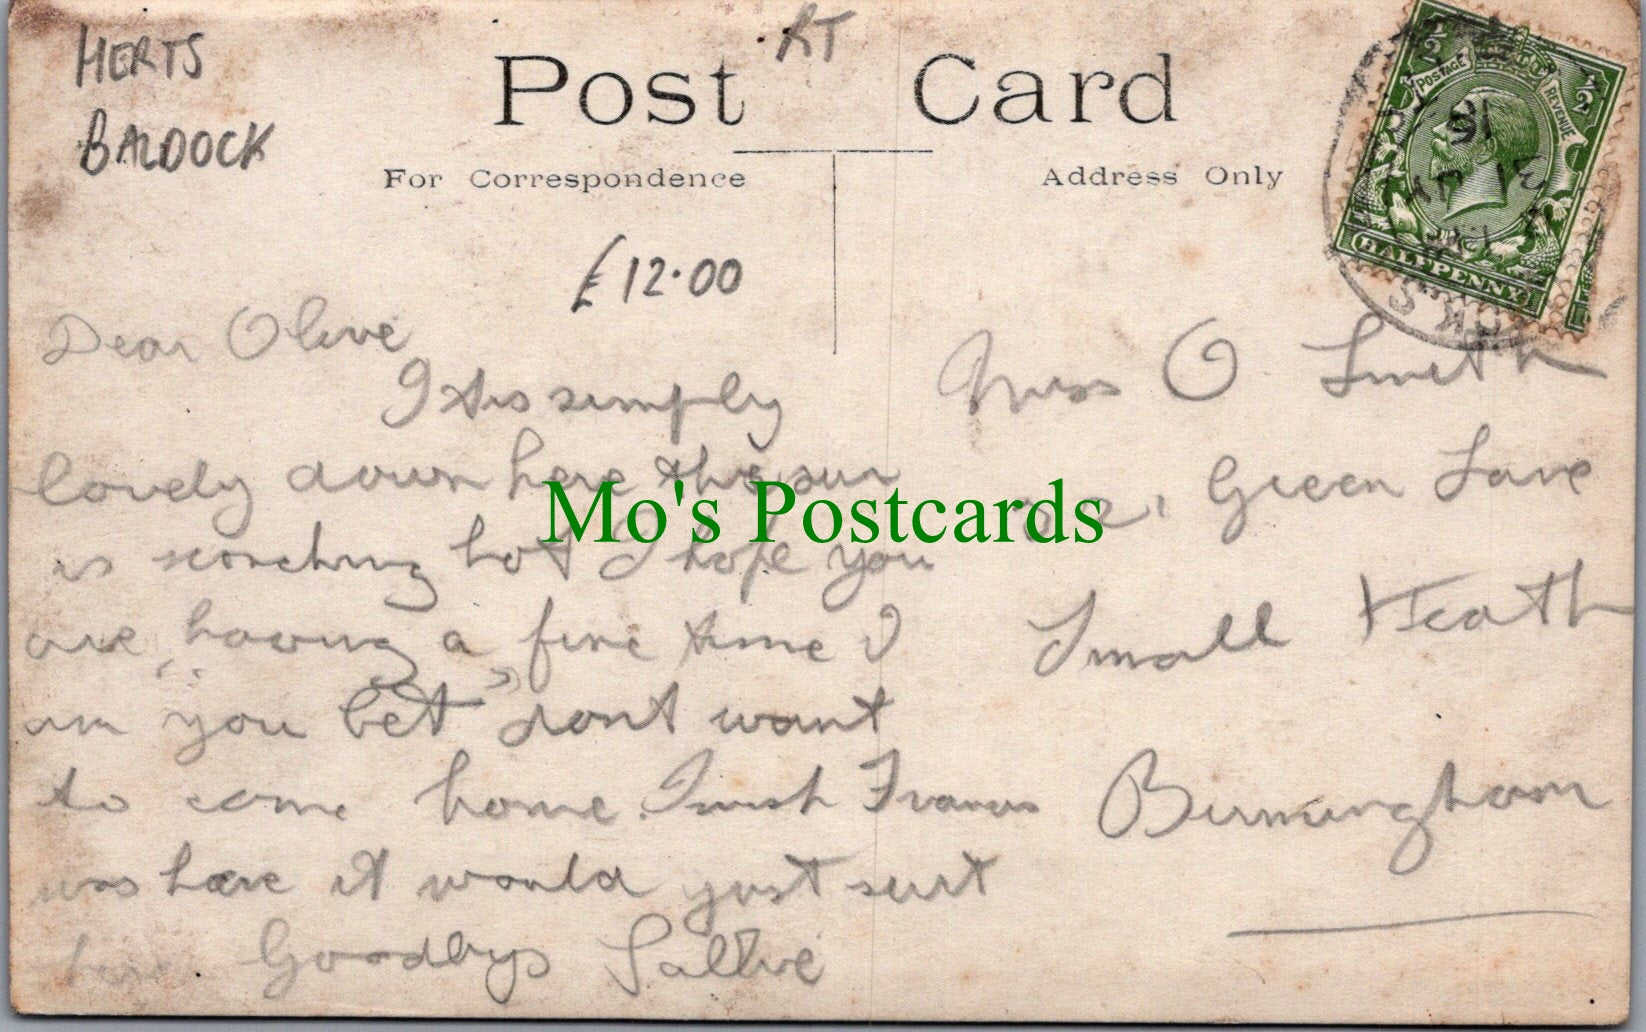 HERTS
BALDOCK
RT
Post Card
For Correspondence
Address Only
£12.00
Dear Olive
simply
lovely down here the sun
is scorching hot I hope you
are having a fine time I
am "you bet" dont want
to come home. I wish Francis
was here it would just suit
Goodbye
Miss O Smith
Green Lane
Small Heath
Birmingham
POSTAGE REVENUE
½ ½
HALFPENNY
16
Mo's Postcards